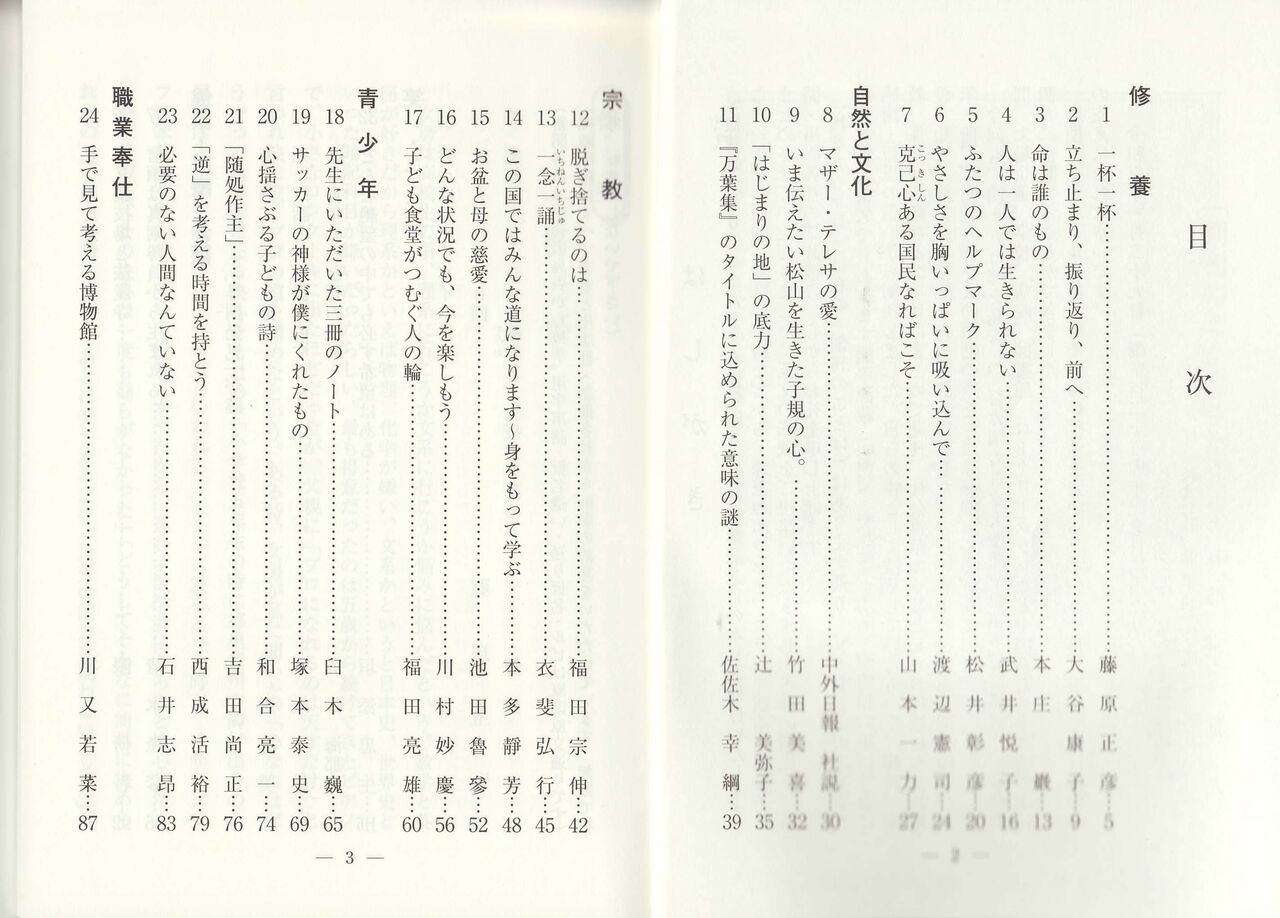 目次
修養
1 一杯一杯……藤原正彦…5
2 立ち止まり、振り返り、前へ……大谷康子…9
3 命は誰のもの……本庄巌…13
4 人は一人では生きられない……武井悦子…16
5 ふたつのヘルプマーク……松井彰彦…20
6 やさしさを胸いっぱいに吸い込んで……渡辺憲司…24
7 克己心ある国民なればこそ……山本一力…27
こっきしん
自然と文化
8 マザー・テレサの愛……中外日報社説…30
9 いま伝えたい松山を生きた子規の心。……竹田美喜…32
10 「はじまりの地」の底力……辻美弥子…35
11 『万葉集』のタイトルに込められた意味の謎……佐佐木幸綱…39
― 2 ―
宗教
12 脱ぎ捨てるのは……福田宗伸…42
13 一念一誦……衣斐弘行…45
いちねんいちじゅ
14 この国ではみんな道になります～身をもって学ぶ……本多靜芳…48
15 お盆と母の慈愛……池田魯參…52
16 どんな状況でも、今を楽しもう……川村妙慶…56
17 子ども食堂がつむぐ人の輪……福田亮雄…60
青少年
18 先生にいただいた三冊のノート……臼木巍…65
19 サッカーの神様が僕にくれたもの……塚本泰史…69
20 心揺さぶる子どもの詩……和合亮一…74
21 「随処作主」……吉田尚正…76
22 「逆」を考える時間を持とう……西成活裕…79
23 必要のない人間なんていない……石井志昂…83
職業奉仕
24 手で見て考える博物館……川又若菜…87
― 3 ―